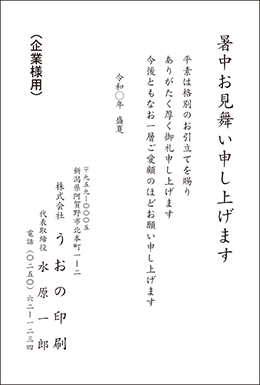 暑中お見舞い申し上げます
平素は格別のお引立てを賜り
ありがたく厚く御礼申し上げます
今後ともなお一層ご愛顧のほどお願い申し上げます
令和〇年 盛夏
〒九五九ー〇〇〇五
新潟県阿賀野市北本町一ー二
株式会社 うおの印刷
代表取締役 水原一郎
電話(〇二五〇)六二ー一二三四
(企業様用)